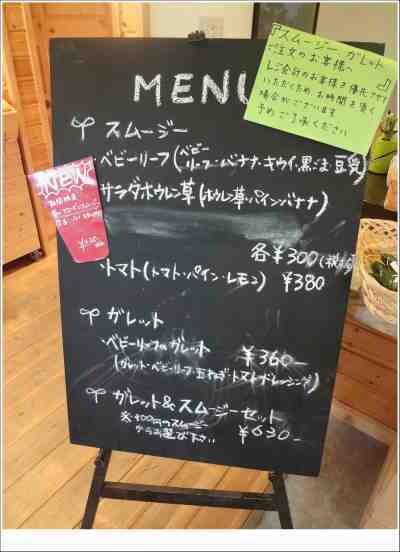 MENU
『スムージー、ガレット
ご注文のお客様へ』
レジ会計のお客様を優先させて
いただくため、お時間を頂く
場合がございます
予めご了承ください
スムージー
ベビーリーフ(ベビーリーフ・バナナ・キウイ・黒ごま・豆乳)
サラダホウレン草(ホウレン草・パイン・バナナ)
NEW
各¥300(税込)
・トマト(トマト・パイン・レモン) ¥380
ガレット
・ベビーリーフのガレット ¥360-
(ガレット・ベビーリーフ・玉ねぎ・トマト・ドレッシング)
ガレット&スムージーセット
¥630-
からお選び下さい